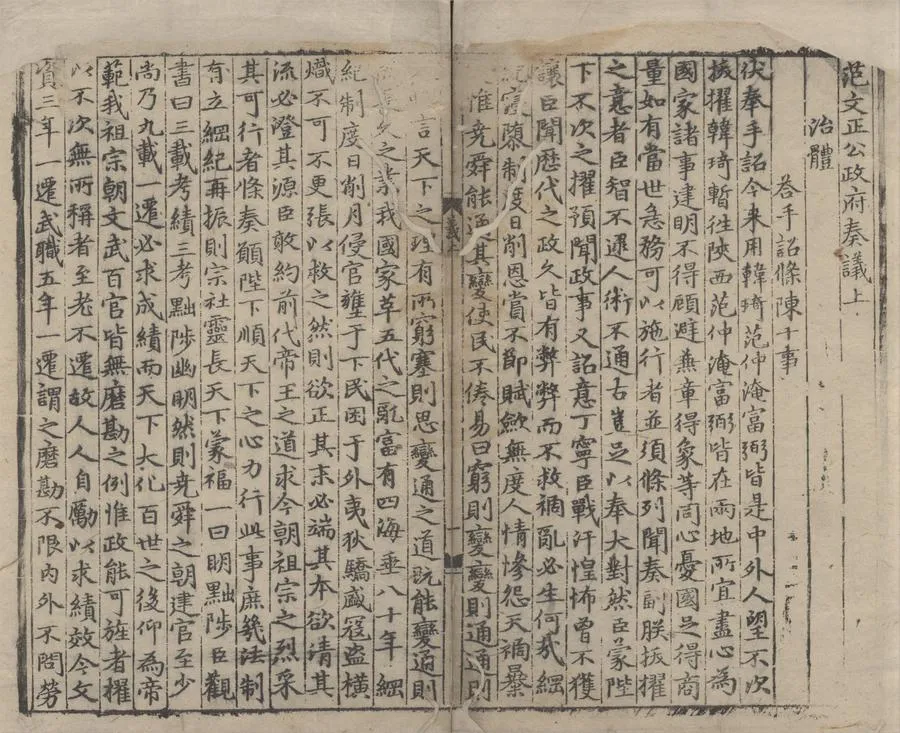 范文正公政府奏議上
治體
荅手詔條陳十事
伏奉手詔今来用韓琦范仲淹富弼皆是中外人望不次
拔擢韓琦暫徃陝西范仲淹富弼皆在兩地所宜盡心為
國家諸事建明不得顧避兼章得象等同心憂國足得商
量如有當世急務可以施行者並須條列聞奏副朕拔擢
之意者臣智不逮人術不通古豈足以奉大對然臣蒙陛
下不次之擢預聞政事又詔意丁寧臣戰汗惶怖曾不獲
讓臣聞歷代之政久皆有弊弊而不救禍亂必生何㢤綱
紀寖隳制度日削恩賞不節賦斂無度人情慘怨天禍暴
惟堯舜能通其變使民不倦易曰窮則變變則通通則
議上
言天下之理有所窮塞則思變通之道既能變通則
長久之業我國家革五代之亂富有四海垂八十年綱
紀制度日削月侵官壅于下民困于外夷狄驕盛寇盜橫
熾不可不更張以救之然則欲正其末必端其本欲清其
流必澄其源臣敢約前代帝王之道求今朝祖宗之烈采
其可行者條奏願陛下順天下之心力行此事庶幾法制
有立綱紀再振則宗社靈長天下蒙福一曰明黜陟臣觀
書曰三載考績三考黜陟幽明然則堯舜之朝建官至少
尚乃九載一遷必求成績而天下大化百世之後仰為帝
範我祖宗朝文武百官皆無磨勘之例惟政能可旌者擢
以不次無所稱者至老不遷故人人自勵以求績效今文
資三年一遷武職五年一遷謂之磨勘不限內外不問勞